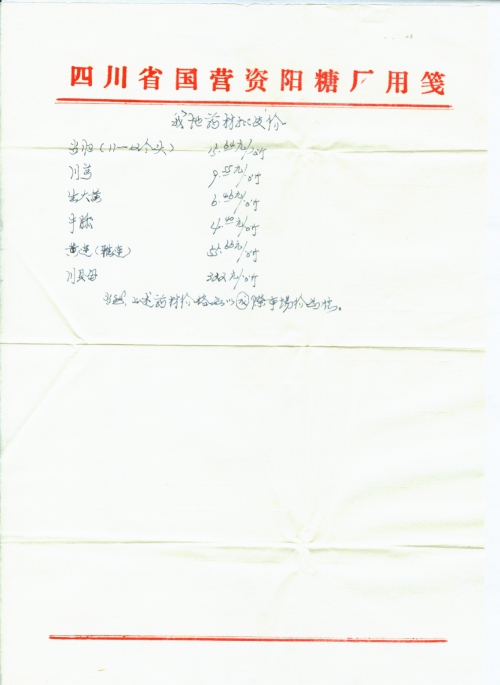 四川省国营资阳糖厂用笺
我地药材批发价
当归(11—12个头) 15.60元/公斤
川芎 9.55元/公斤
生大黄 6.46元/公斤
牛膝 4.40元/公斤
黄连(鸡连) 55.60元/公斤
川贝母 元/公斤
当然,上述药材价格应以实际市场价为准。